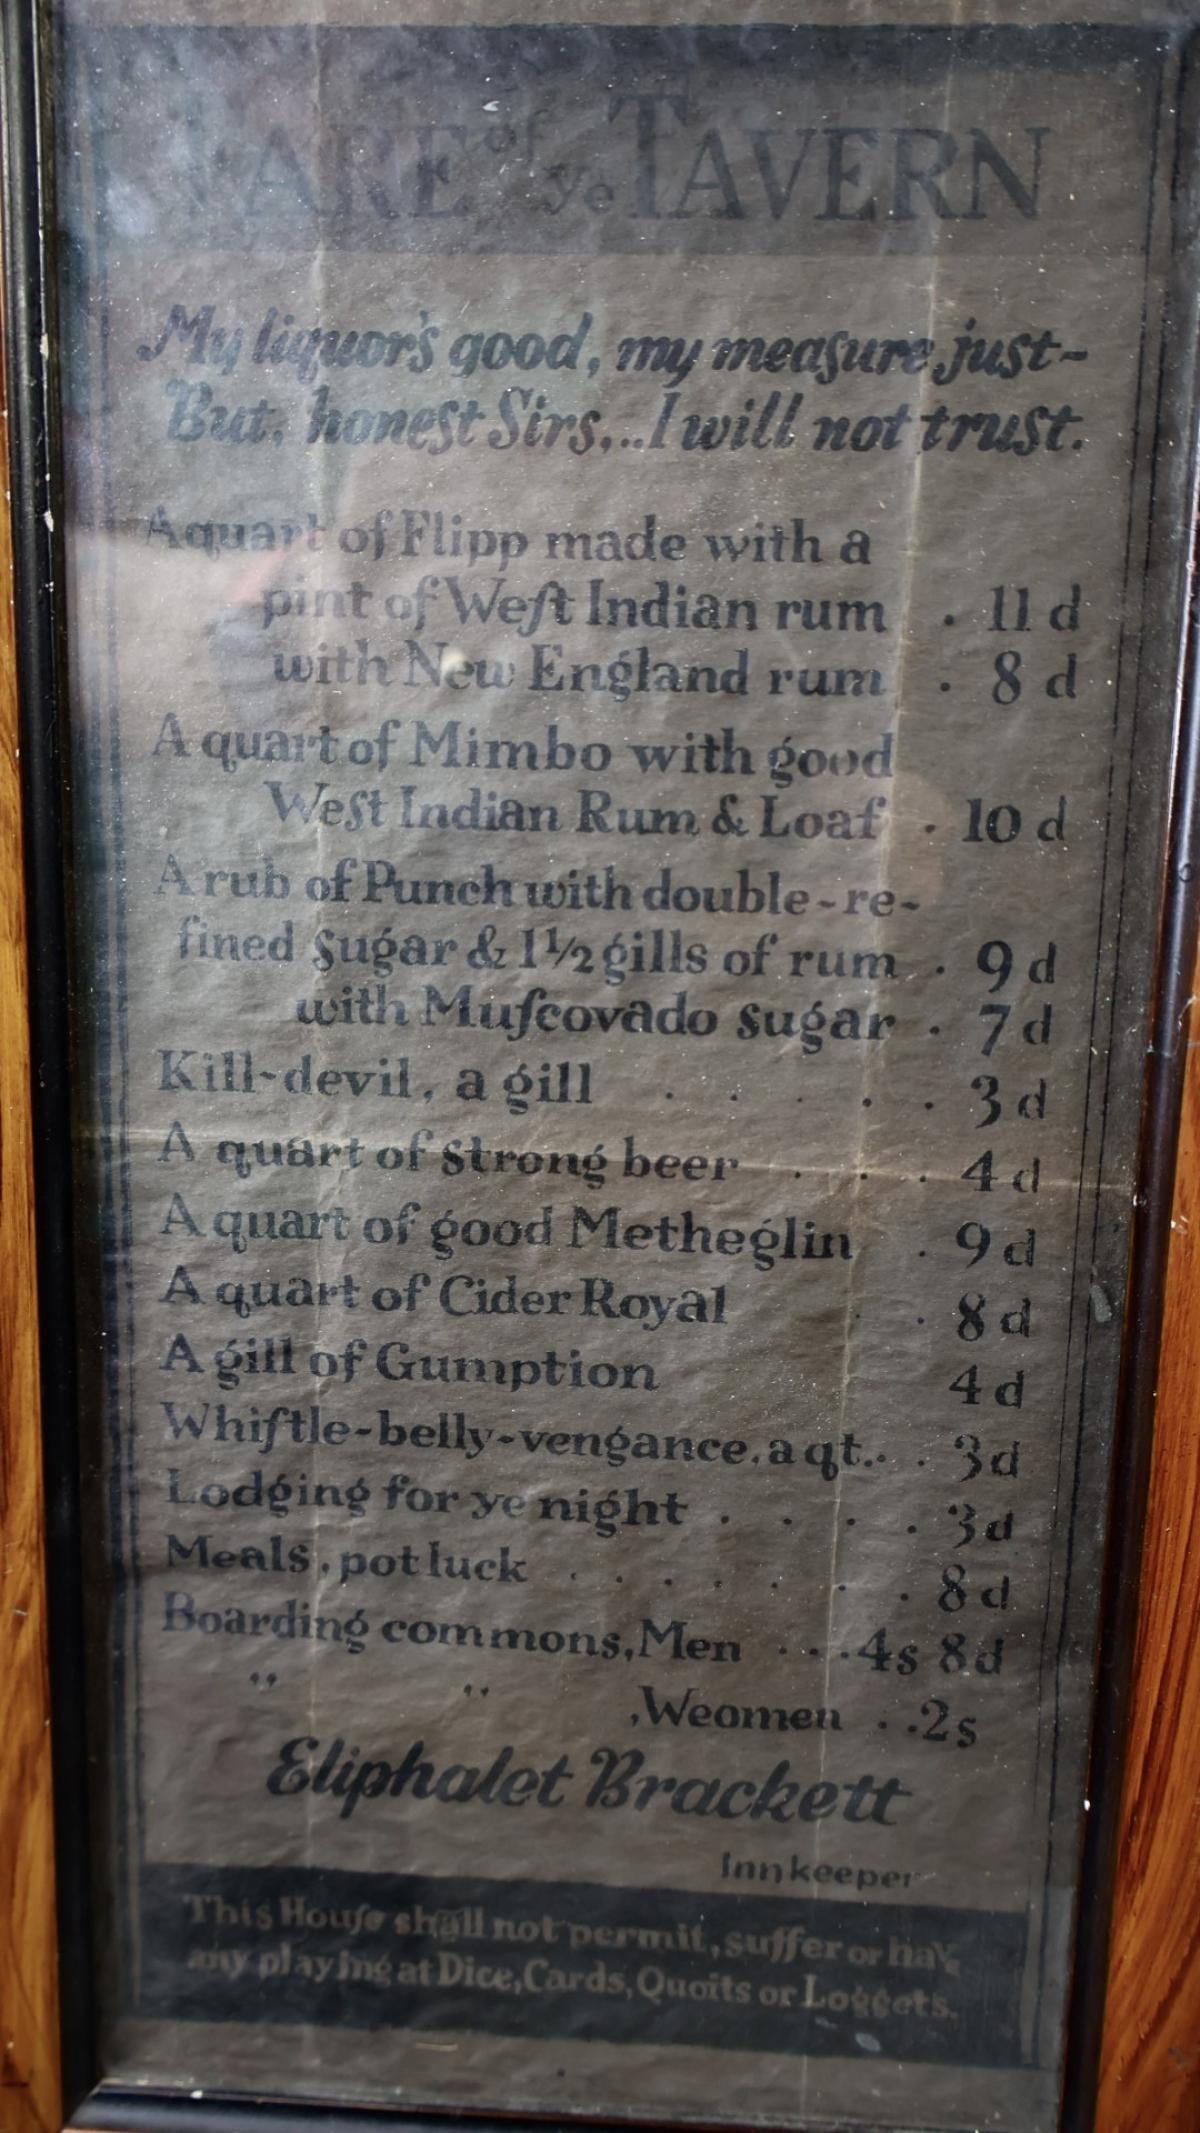 FARE of ye TAVERN
My liquor's good, my meaſure just~
But, honest Sirs,...I will not trust.
A quart of Flipp made with a
pint of Weſt Indian rum . 11 d
with New England rum . 8 d
A quart of Mimbo with good
West Indian Rum & Loaf . 10 d
A rub of Punch with double-re-
fined sugar & 1½ gills of rum . 9 d
with Muſcovado sugar . 7 d
Kill-devil, a gill . . . . . 3 d
A quart of strong beer . . . 4 d
A quart of good Metheglin . 9 d
A quart of Cider Royal . . 8 d
A gill of Gumption 4 d
Whiſtle-belly-vengance, a qt.. . 3 d
Lodging for ye night . . . . 3 d
Meals, pot luck . . . . . . . 8 d
Boarding commons, Men . . . 4s 8d
" " , Weomen . . 2s
Eliphalet Brackett
Innkeeper
This Houſe shall not permit, suffer or hav
any playing at Dice, Cards, Quoits or Loggets.